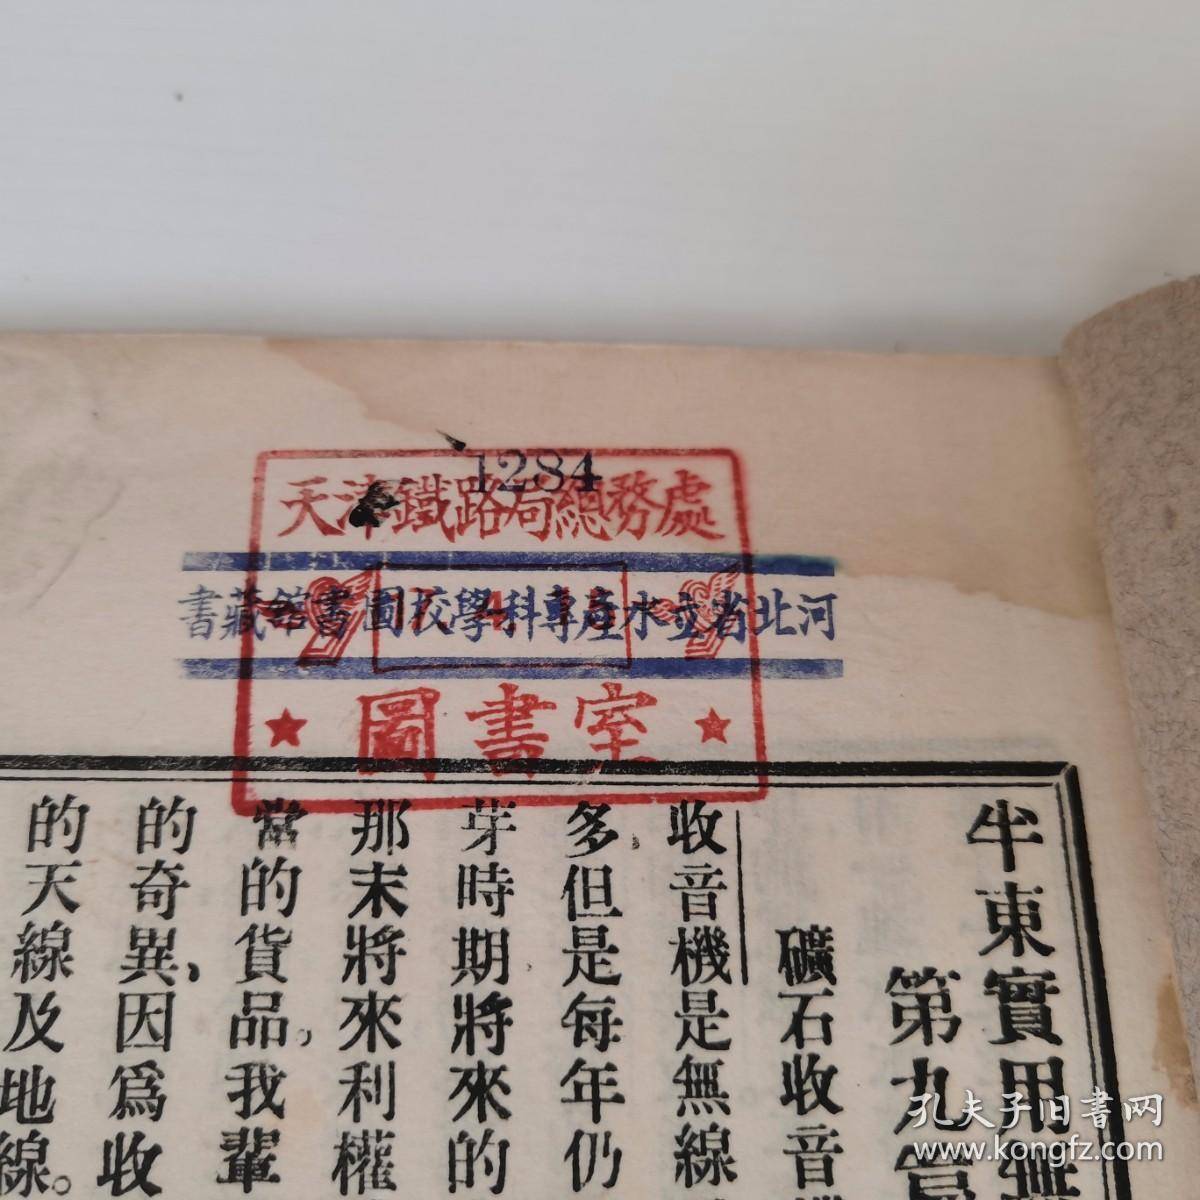 1284
天津鐵路局總務處
河北省立水產專科學校圖書館藏書
圖書室
半東實用無
第九
礦石收音機
收音機是無線
多,但是每年仍
芽時期將來的
那末將來利權
當的貨品。我輩
的奇異,因爲收
的天線及地線。
孔夫子旧書网
www.kongfz.com